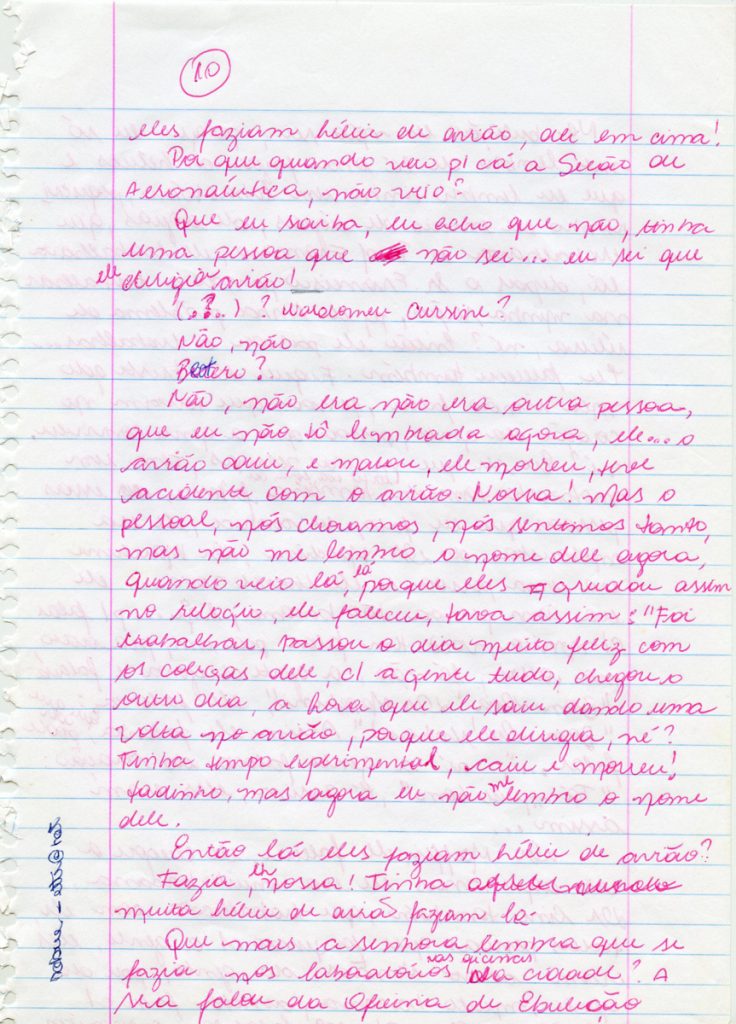 10
eles faziam hélice de avião, ali em cima!
Por que quando veio p/ cá a Seção de
Aeronáutica, não veio?
Que eu saiba, eu acho que não, tinha
uma pessoa que não sei... eu sei que
ele dirigia avião!
(..?..) ? Waldomeu Cursine?
Não, não
?
Não, não era não era outra pessoa,
que eu não tô lembrada agora, ele... o
avião caiu, e matou, ele morreu, teve
acidente com o avião. Nossa! Mas o
pessoal, nós choramos, nós sentimos tanto,
mas não me lembro o nome dele agora,
quando veio lá, lá porque eles grudou assim
no relógio, ele faleceu, tava assim: "Foi
trabalhar, passou o dia muito feliz com
os colegas dele, c/ a gente tudo, chegou o
outro dia, a hora que ele saiu dando uma
volta no avião, porque ele dirigia, né?
Tinha tempo experimental, caiu e morreu!
tadinho, mas agora eu não me lembro o nome
dele.
Então lá eles faziam hélice de avião?
Fazia, nossa! Tinha
muita hélice de avião faziam lá.
Que mais a senhora lembra que se
fazia nos laboratórios nas oficinas da cidade? A
sra falou da Oficina de Ebulição